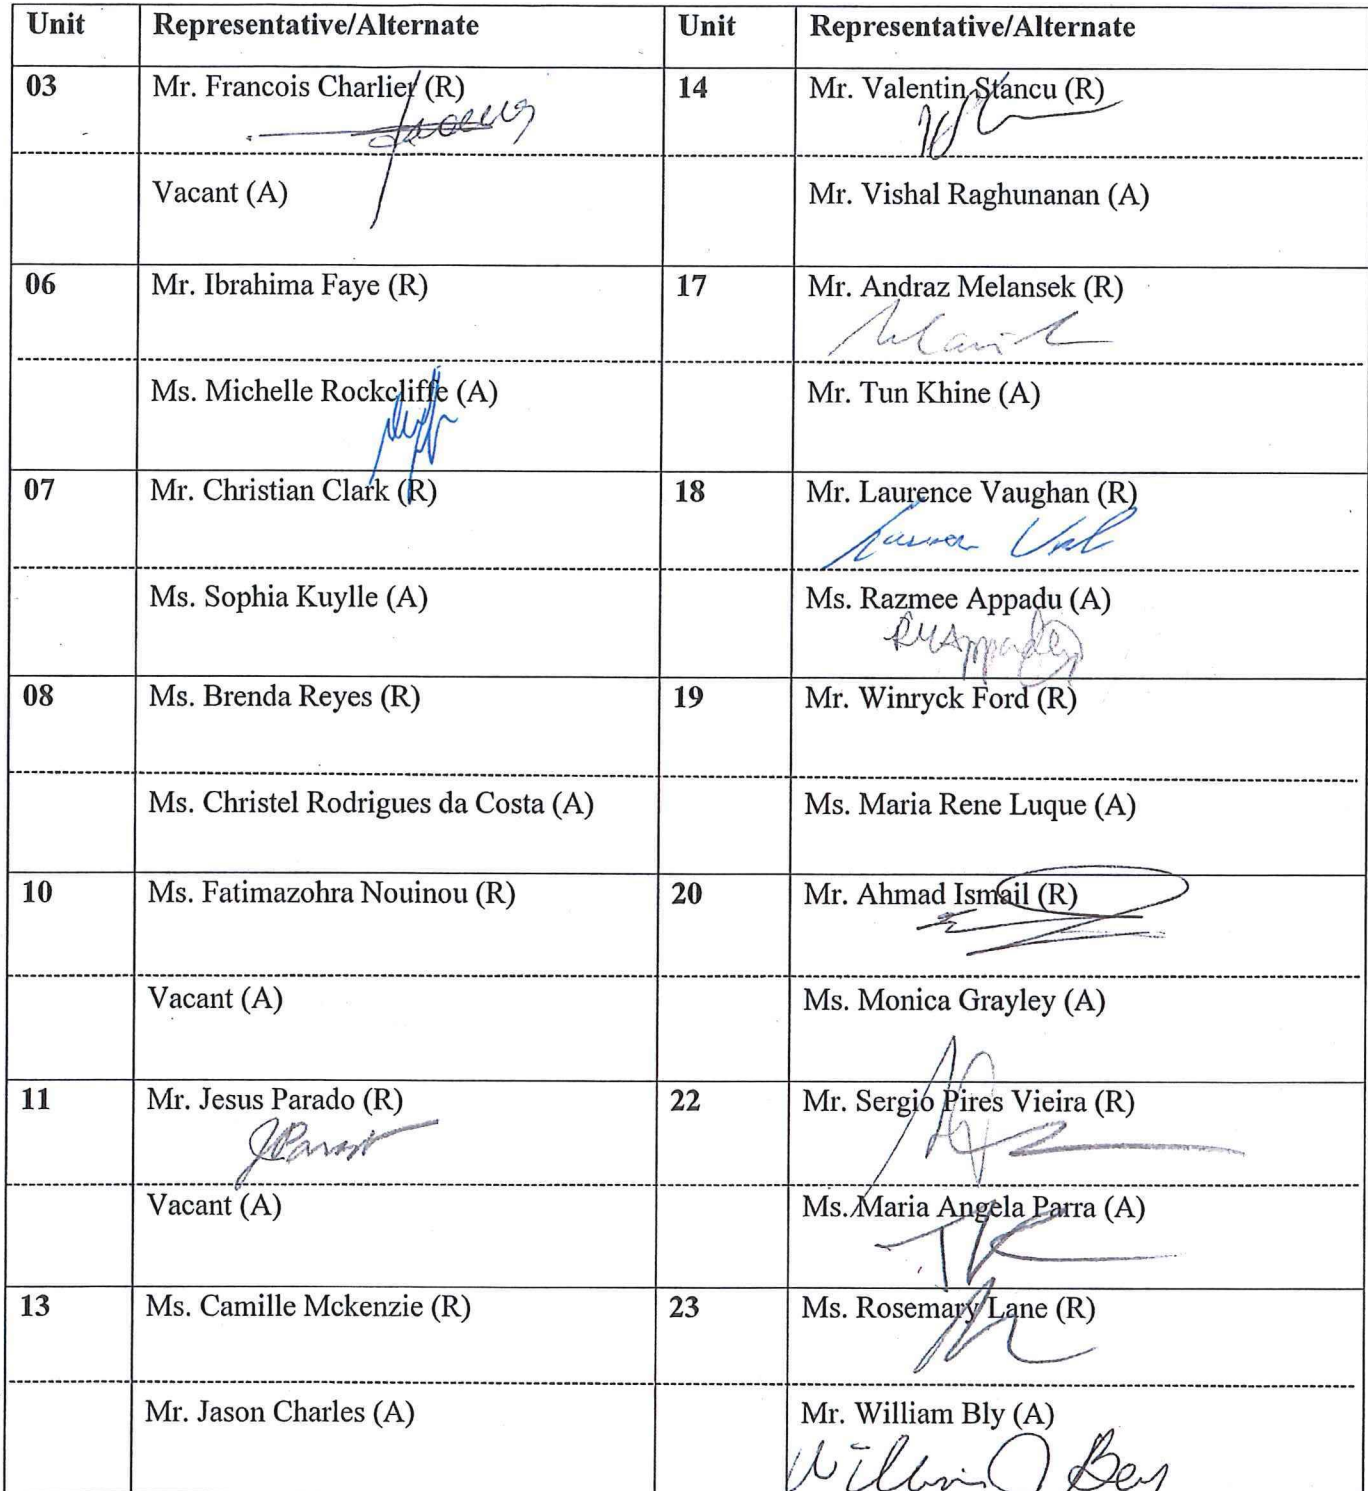 Unit Representative/Alternate Unit Representative/Alternate
03 Mr. Francois Charlier (R) 14 Mr. Valentin Stancu (R)
Vacant (A) Mr. Vishal Raghunanan (A)
06 Mr. Ibrahima Faye (R) 17 Mr. Andraz Melansek (R)
Ms. Michelle Rockcliffe (A) Mr. Tun Khine (A)
07 Mr. Christian Clark (R) 18 Mr. Laurence Vaughan (R)
Ms. Sophia Kuylle (A) Ms. Razmee Appadu (A)
RMAppadu
08 Ms. Brenda Reyes (R) 19 Mr. Winryck Ford (R)
Ms. Christel Rodrigues da Costa (A) Ms. Maria Rene Luque (A)
10 Ms. Fatimazohra Nouinou (R) 20 Mr. Ahmad Ismail (R)
Vacant (A) Ms. Monica Grayley (A)
11 Mr. Jesus Parado (R) 22 Mr. Sergio Pires Vieira (R)
Vacant (A) Ms. Maria Angela Parra (A)
13 Ms. Camille Mckenzie (R) 23 Ms. Rosemary Lane (R)
Mr. Jason Charles (A) Mr. William Bly (A)